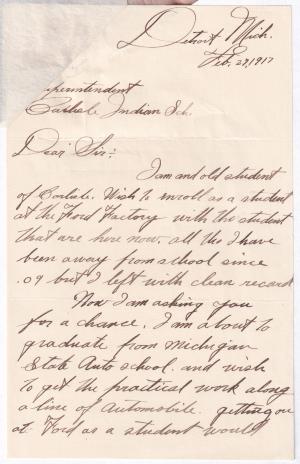 Detroit Mich.
Feb. 27, 1917
perintendent
Carlisle Indian Sch.
Dear Sir:
I am and old student
of Carlisle. Wish to enroll as a student
at the Ford Factory with the student
that are here now. all tho I have
been away from school since
.09 but I left with clean record
Now I am asking you
for a chance. I am about to
graduate from Michigan
State Auto school. and wish
to get the practical work along
a line of automobile. getting on
at Ford as a student would